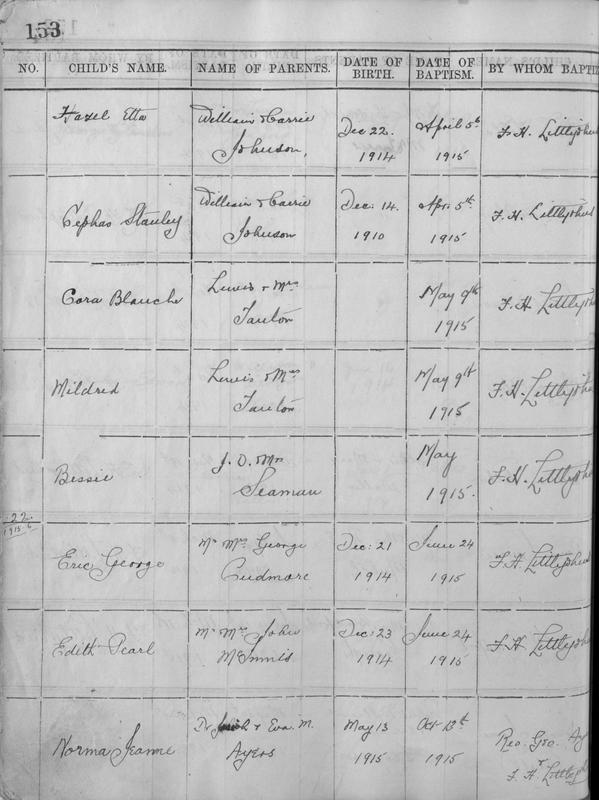 153
NO. CHILD'S NAME. NAME OF PARENTS. DATE OF BIRTH. DATE OF BAPTISM. BY WHOM BAPTIZ
Hazel Etta William & Carrie Johnson, Dec 22. 1914 April 5th 1915 F. H. Littlejohns
Cephas Stanley William & Carrie Johnson Dec: 14. 1910 Apr. 5th 1915 F. H. Littlejohns
Cora Blanche Lewis & Mrs Tanton May 9th 1915 F. H. Littlejohns
Mildred Lewis & Mrs Tanton May 9th 1915 F. H. Littlejohns
Bessie J. D. Mrs Seaman May 1915. F. H. Littlejohns
22
1915-6
Eric George Mr Mrs George Cudmore Dec: 21 1914 June 24 1915 F. H. Littlejohns
Edith Pearl Mr Mrs John McInnis Dec: 23 1914 June 24 1915 F. H. Littlejohns
Norma Jeanne Dr & Eva. M. Ayers May 13 1915 Oct 12th 1915 Rev. Geo. Ay
F. H. Littlejoh